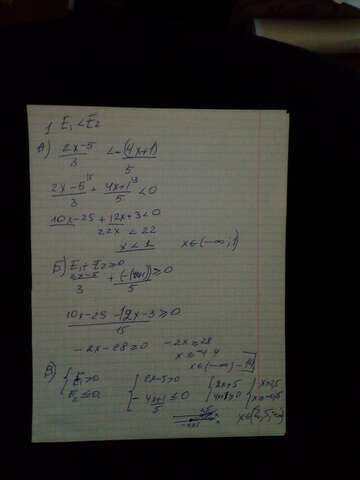 1 E₁ < E₂
А) (2x-5)/3 < -(4x+1)/5
(2x-5)/3 + (4x+1)/5 < 0
10x-25 + 12x+3 < 0
22x < 22
x < 1 x∈(-∞;1)
Б) E₁ + E₂ ≥ 0
(2x-5)/3 + (-(4x+1))/5 ≥ 0
(10x-25-12x-3)/15 ≥ 0
-2x-28 ≥ 0 -2x ≥ 28
x ≤ -14
x∈(-∞;-14]
В) { E₁ > 0 { 2x-5 > 0 { 2x > 5 { x > 2,5
E₂ ≤ 0 -(4x+1)/5 ≤ 0 4x+1 ≥ 0
x∈(2,5;∞)